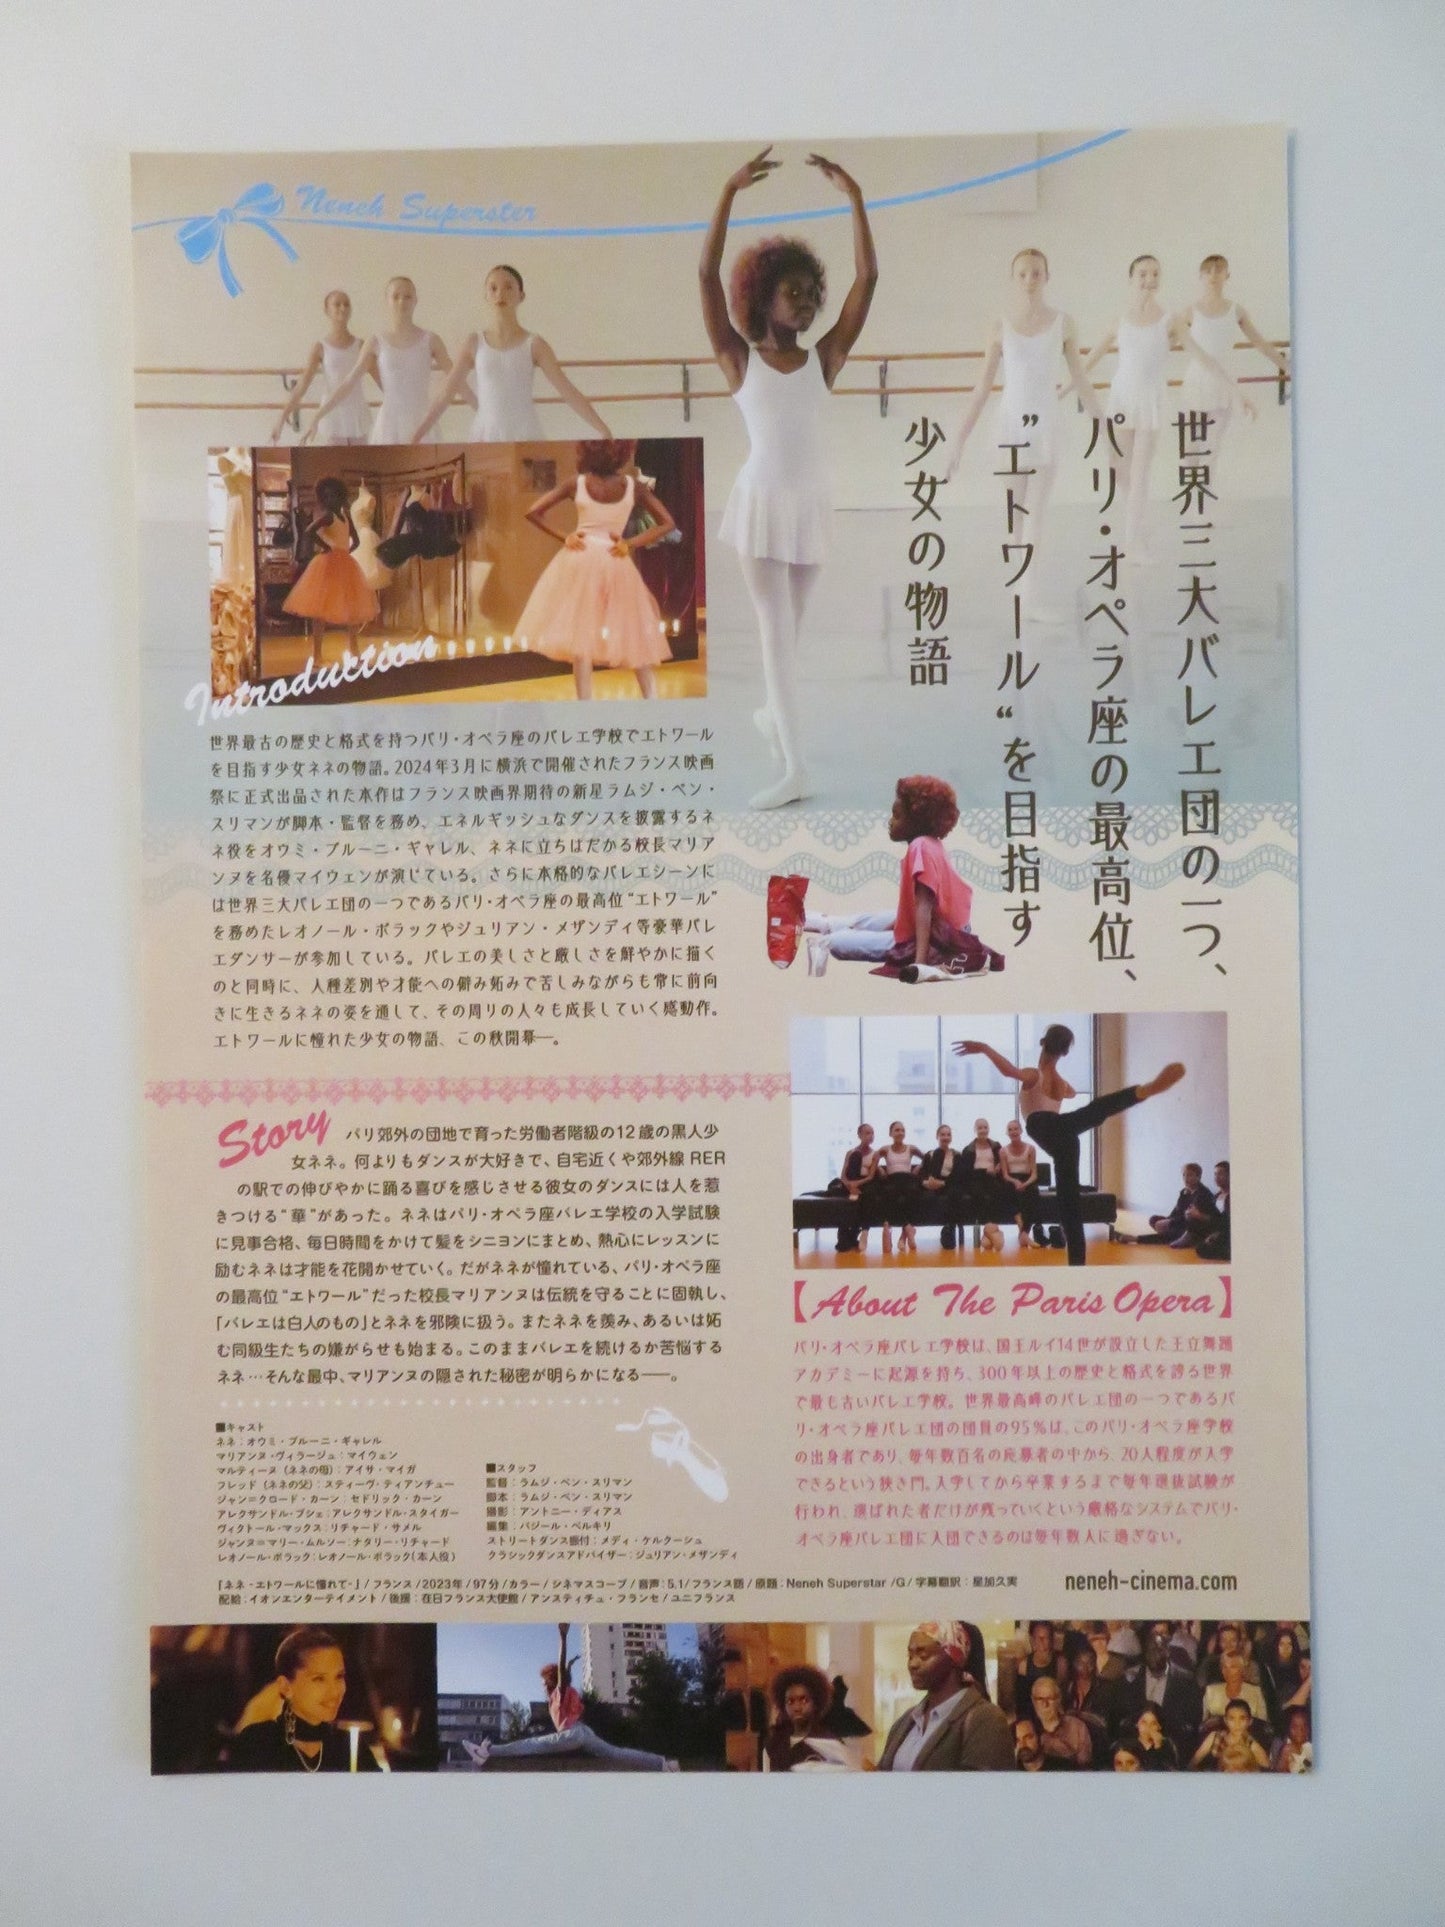 Neneh Superster
世界三大バレエ団の一つ、
パリ・オペラ座の最高位、
”エトワール“を目指す
少女の物語
Introduction
世界最古の歴史と格式を持つパリ・オペラ座のバレエ学校でエトワール
を目指す少女ネネの物語。2024年3月に横浜で開催されたフランス映画
祭に正式出品された本作はフランス映画界期待の新星ラムジ・ベン・
スリマンが脚本・監督を務め、エネルギッシュなダンスを披露するネ
ネ役をオウミ・ブルーニ・ギャレル、ネネに立ちはだかる校長マリア
ンヌを名優マイウェンが演じている。さらに本格的なバレエシーンに
は世界三大バレエ団の一つであるパリ・オペラ座の最高位“エトワール”
を務めたレオノール・ボラックやジュリアン・メザンディ等豪華バレ
エダンサーが参加している。バレエの美しさと厳しさを鮮やかに描く
のと同時に、人種差別や才能への僻み妬みで苦しみながらも常に前向
きに生きるネネの姿を通して、その周りの人々も成長していく感動作。
エトワールに憧れた少女の物語、この秋開幕―。
Story
パリ郊外の団地で育った労働者階級の12歳の黒人少
女ネネ。何よりもダンスが大好きで、自宅近くや郊外線 RER
の駅での伸びやかに踊る喜びを感じさせる彼女のダンスには人を惹
きつける“華”があった。ネネはパリ・オペラ座バレエ学校の入学試験
に見事合格、毎日時間をかけて髪をシニヨンにまとめ、熱心にレッスンに
励むネネは才能を花開かせていく。だがネネが憧れている、パリ・オペラ座
の最高位“エトワール”だった校長マリアンヌは伝統を守ることに固執し、
「バレエは白人のもの」とネネを邪険に扱う。またネネを羨み、あるいは妬
む同級生たちの嫌がらせも始まる。このままバレエを続けるか苦悩する
ネネ…そんな最中、マリアンヌの隠された秘密が明らかになる――。
【About The Paris Opera】
パリ・オペラ座バレエ学校は、国王ルイ14世が設立した王立舞踊
アカデミーに起源を持ち、300年以上の歴史と格式を誇る世界
で最も古いバレエ学校。世界最高峰のバレエ団の一つであるパ
リ・オペラ座バレエ団の団員の95%は、このパリ・オペラ座学校
の出身者であり、毎年数百名の応募者の中から、20人程度が入学
できるという狭き門。入学してから卒業するまで毎年選抜試験が
行われ、選ばれた者だけが残っていくという厳格なシステムでパリ・
オペラ座バレエ団に入団できるのは毎年数人に過ぎない。
■キャスト
ネネ：オウミ・ブルーニ・ギャレル
マリアンヌ・ヴィラージュ：マイウェン
マルティーヌ（ネネの母）：アイサ・マイガ
フレッド（ネネの父）：スティーヴ・ティアンチュー
ジャン＝クロード・カーン：セドリック・カーン
アレクサンドル・ブシェ：アレクサンドル・スタイガー
ヴィクトール・マックス：リチャード・サメル
ジャンヌ＝マリー・ムルソー：ナタリー・リチャード
レオノール・ボラック：レオノール・ボラック（本人役）
■スタッフ
監督：ラムジ・ベン・スリマン
脚本：ラムジ・ベン・スリマン
撮影：アントニー・ディアス
編集：バジール・ベルキリ
ストリートダンス振付：メディ・ケルクーシュ
クラシックダンスアドバイザー：ジュリアン・メザンディ
「ネネ -エトワールに憧れて-」/ フランス / 2023年 / 97分 / カラー / シネマスコープ / 音声：5.1 / フランス語 / 原題：Neneh Superstar / G / 字幕翻訳：星加久実
配給：イオンエンターテイメント / 後援：在日フランス大使館 / アンスティチュ・フランセ / ユニフランス
neneh-cinema.com